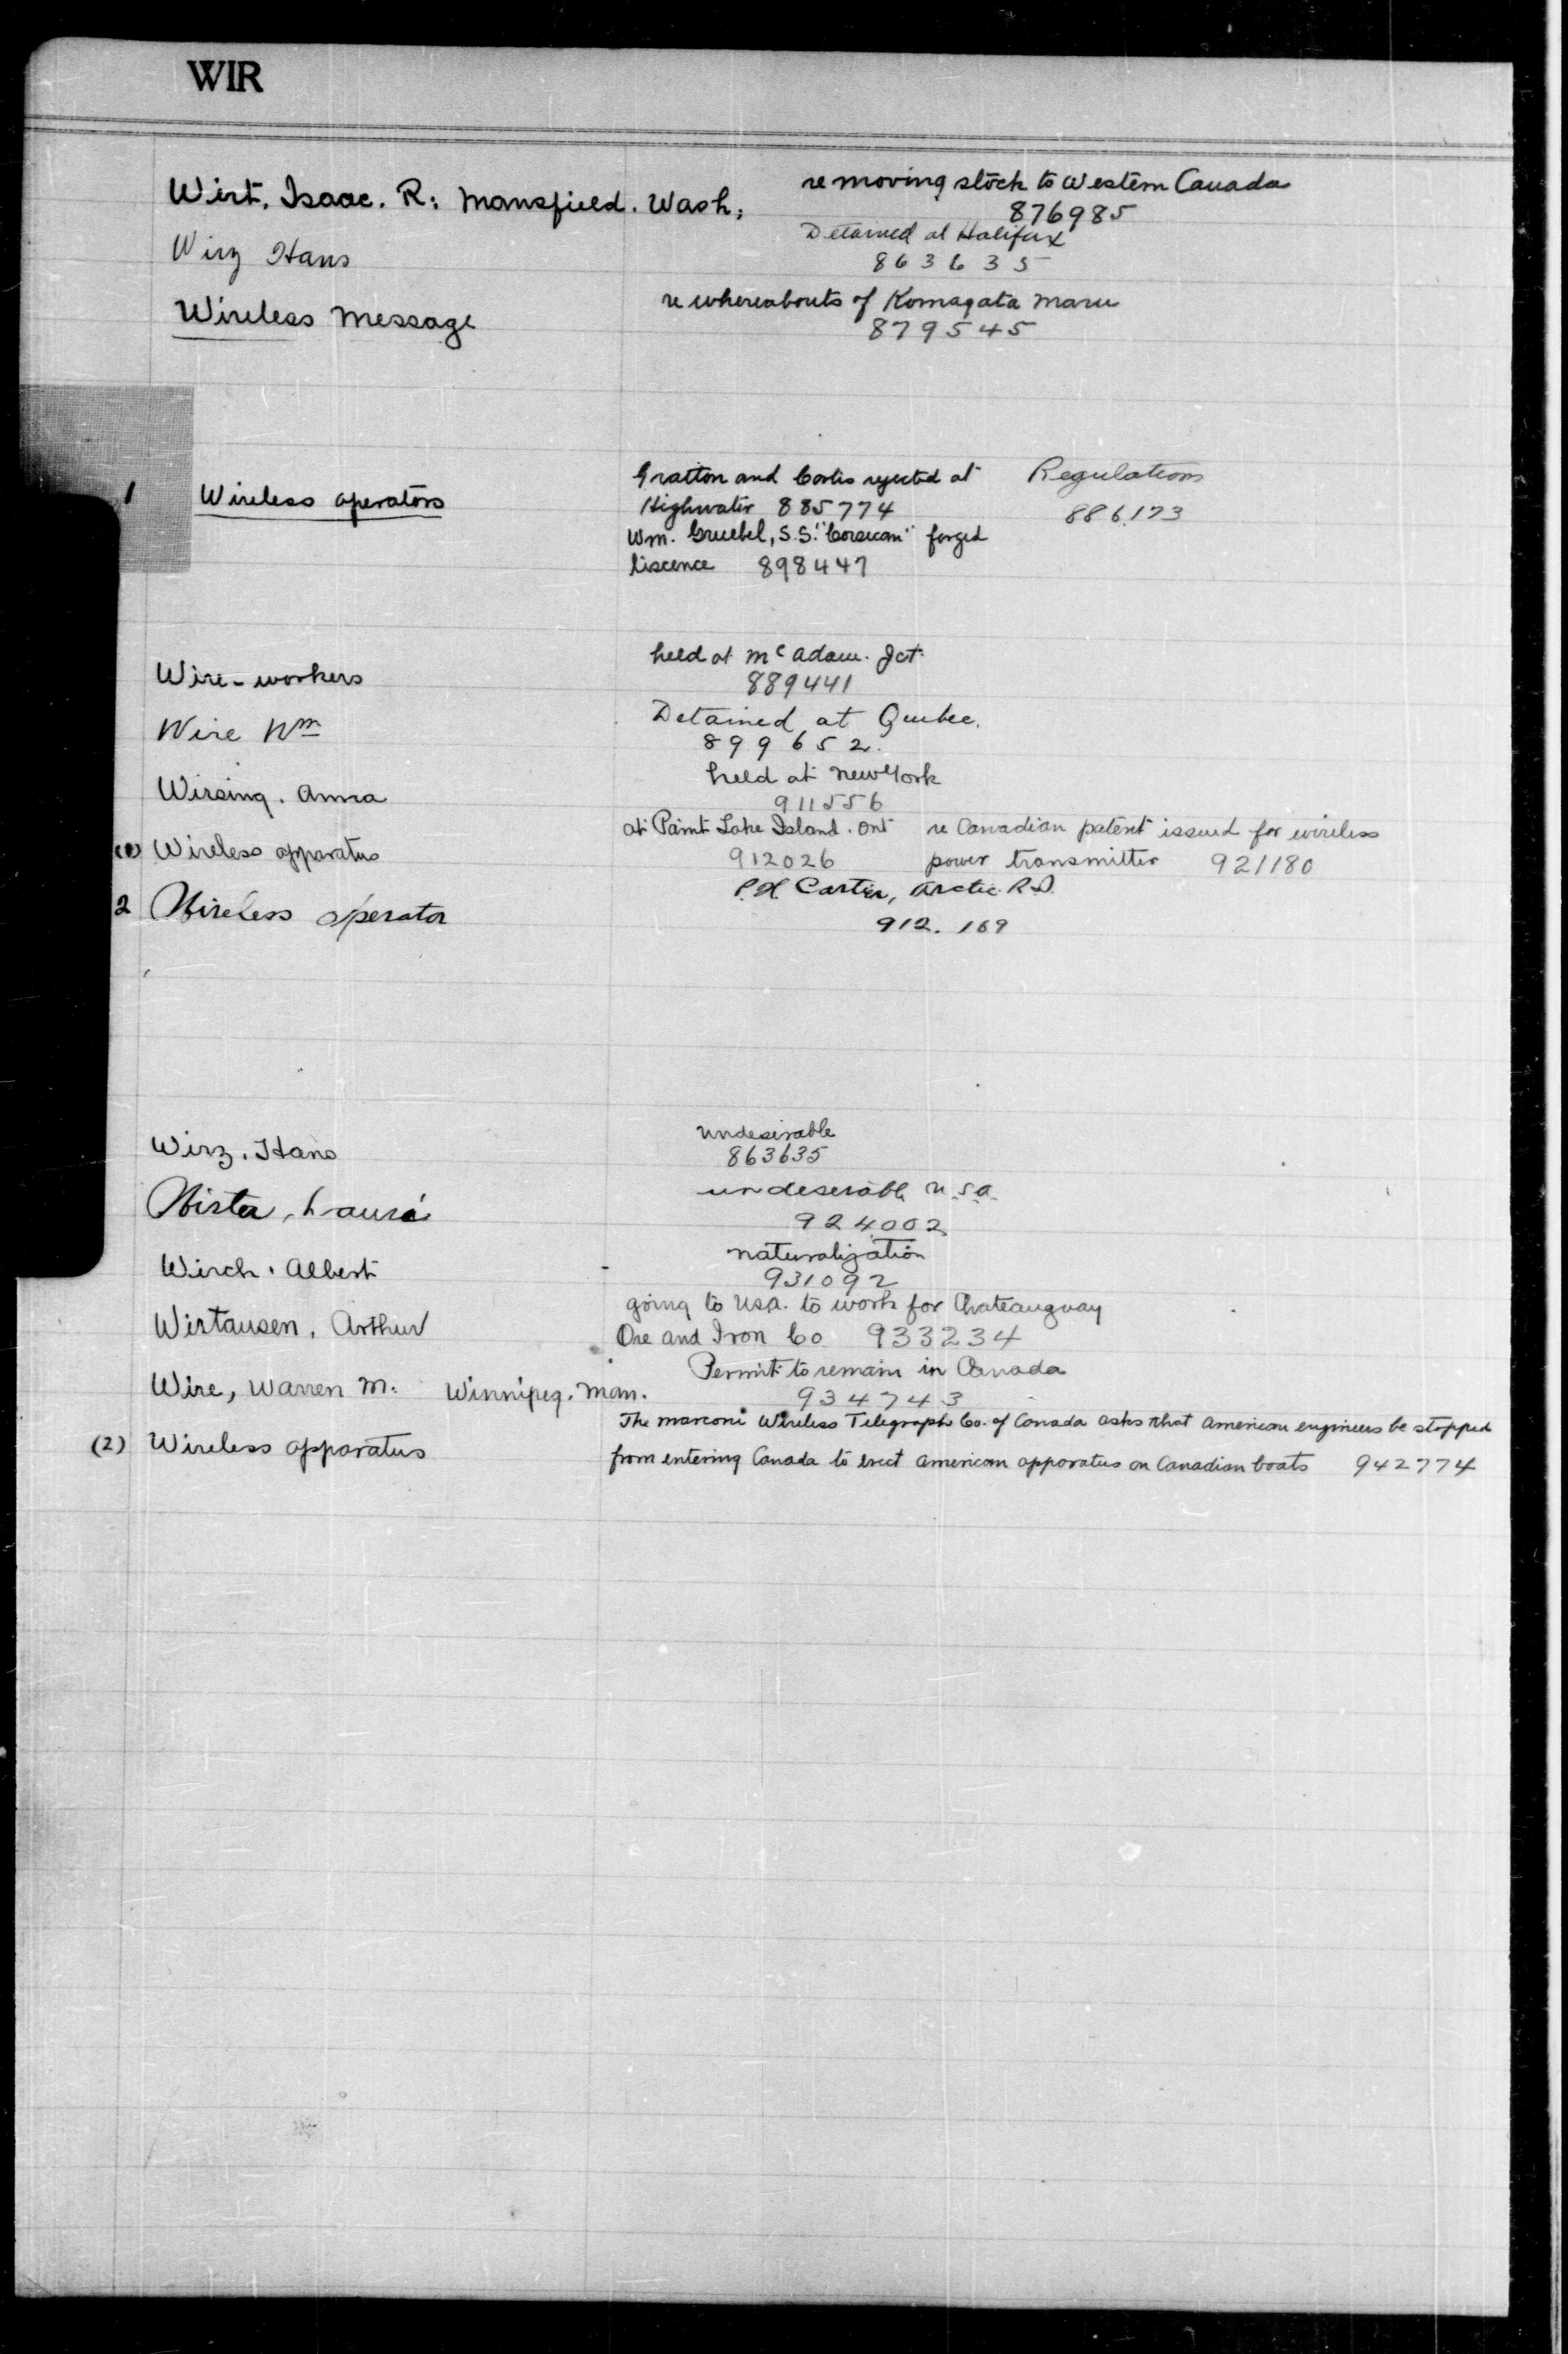 WIR
Wirt, Isaac. R: Mansfield. Wash; re moving stock to Western Canada
876985
Wirz Hans Detained at Halifax
863635
Wireless Message re whereabouts of Komagata Maru
879545
1 Wireless operators Gratton and Cortis rejected at Regulations
Highwater 885774 886,123
Wm. Gruebel, S.S. "Corsican" forged
liscence 898447
Wire-workers held at McAdam. Jct.
889441
Wire Wm Detained at Quebec.
899652.
Wirsing. Anna held at New York
911556
(1) Wireless apparatus at Paint Lake Island. Ont re Canadian patent issued for wireless
912026 power transmitter 921180
2 Wireless operator P.H. Carter, Arctic R.D.
912.169
Wirz, Hans undesirable
863635
Wirta, Lauri undeserable U.S.A.
924002
Wirch. Albert naturalization
931092
Wirtausen, Arthur going to U.S.A. to work for Chateauguay
Ore and Iron Co 933234
Wire, Warren M. Winnipeg. Man. Permit to remain in Canada
934743
(2) Wireless apparatus The Marconi Wireless Telegraph Co. of Canada asks that American engineers be stopped
from entering Canada to erect American apparatus on Canadian boats 942774